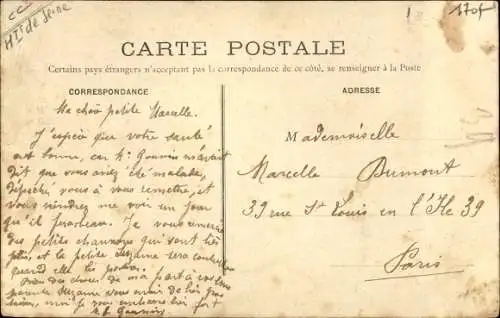 CC
Ht de Seine
170f
CARTE POSTALE
Certains pays étrangers n'acceptant pas la correspondance de ce côté, se renseigner à la Poste
CORRESPONDANCE
Ma chère petite Marcelle.
J'espère que votre santé
est bonne, car Mr Gouvin m'avait
dit que vous aviez été malade,
dépêchez vous à vous remettre, et
vous viendrez me voir un jour
qu'il fera beau. Je vous remercie
des petits chaussons qui sont très
jolis, et la petite Suzanne sera contente
quand elle les
de ma part à vos
parents Suzanne vous
moi je vous embrasse bien fort
Gouvin
ADRESSE
Mademoiselle
Marcelle Dumont
39 rue St Louis en l'Ile 39
Paris